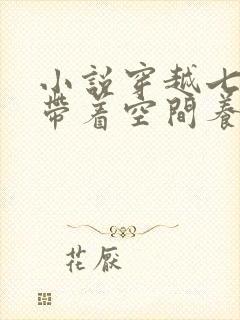 小説穿越七
帶着空間養
花厭